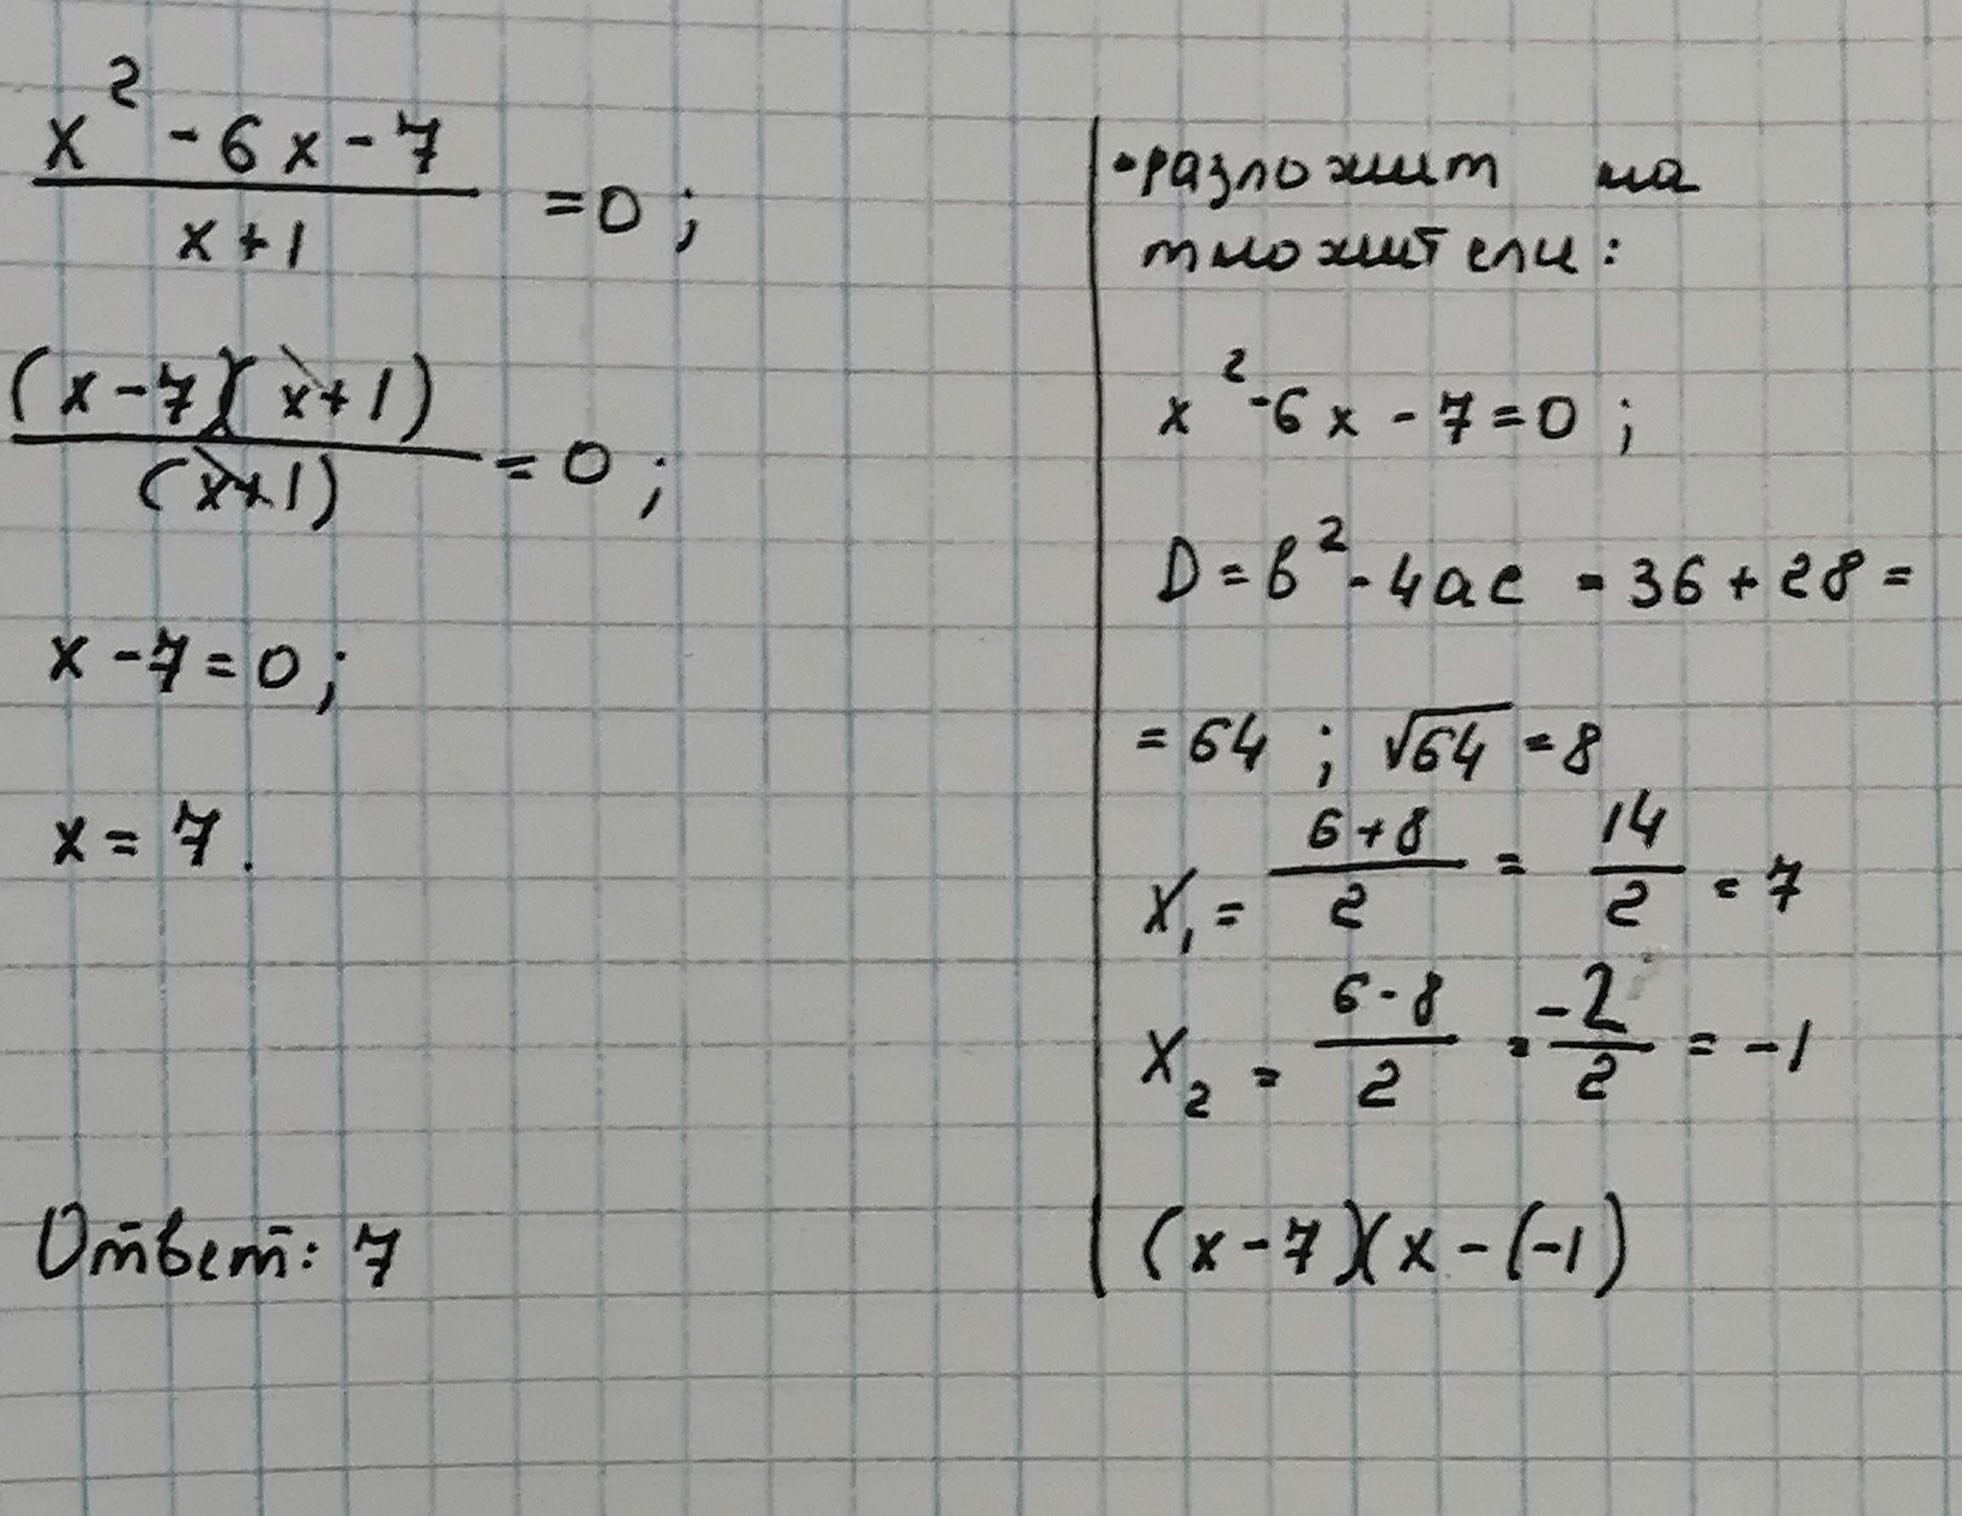 x² - 6x - 7
x + 1
= 0 ;
(x - 7)(x + 1)
(x + 1)
= 0 ;
x - 7 = 0 ;
x = 7 .
Ответ: 7
• разложим на
множители:
x² - 6x - 7 = 0 ;
D = b² - 4ac = 36 + 28 =
= 64 ; √64 = 8
x₁ = (6 + 8)/2 = 14/2 = 7
x₂ = (6 - 8)/2 = -2/2 = -1
(x - 7)(x - (-1)